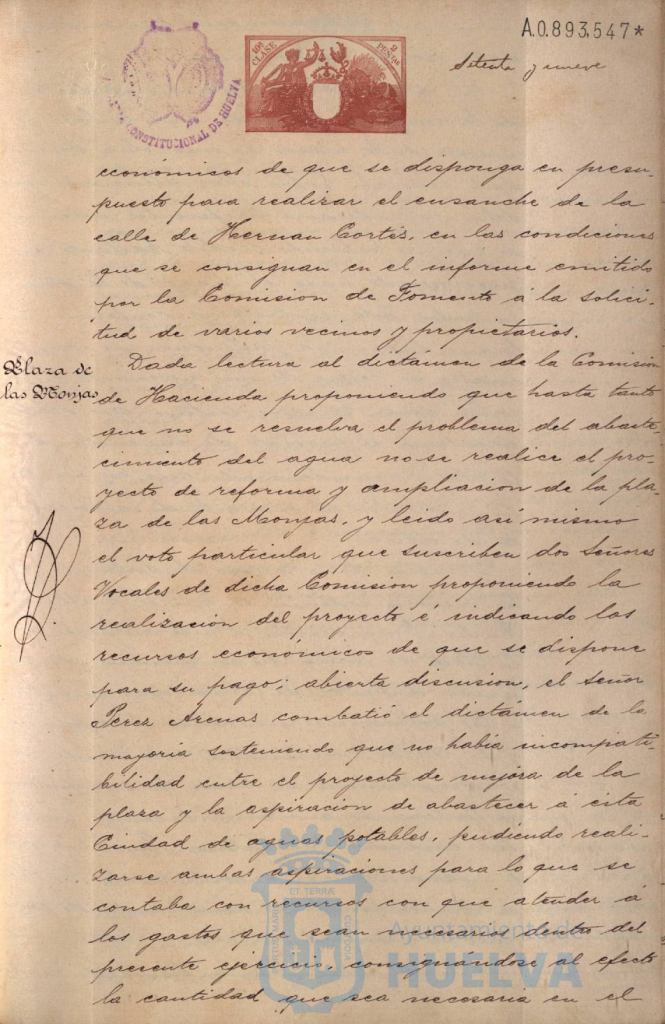 A.0.893.547*
CONSTITUCIONAL DE HUELVA
10ª CLASE
2 PESETAS
Setenta y nueve
económicos de que se disponga en presu-
puesto para realizar el ensanche de la
calle de Hernan Cortés, en las condiciones
que se consignan en el informe emitido
por la Comision de Fomento á la solici-
tud de varios vecinos y propietarios.
Plaza de
las Monjas
Dada lectura al dictámen de la Comision
de Hacienda proponiendo que hasta tanto
que no se resuelva el problema del abaste-
cimiento del agua no se realice el pro-
yecto de reforma y ampliacion de la pla-
za de las Monjas, y leido así mismo
el voto particular que suscriben dos Señores
Vocales de dicha Comision proponiendo la
realización del proyecto é indicando los
recursos económicos de que se dispone
para su pago; abierta discusion, el Señor
Perez Arenas combatió el dictámen de la
mayoría sosteniendo que no había incompati-
bilidad entre el proyecto de mejora de la
plaza y la aspiracion de abastecer á esta
Ciudad de aguas potables, pudiendo reali-
zarse ambas aspiraciones para lo que se
contaba con recursos con que atender á
los gastos que sean necesarios dentro del
presente ejercicio, consignándose al efecto
la cantidad que sea necesaria en el
ET TERRÆ
CUSTODIA
Ayuntamiento de
HUELVA